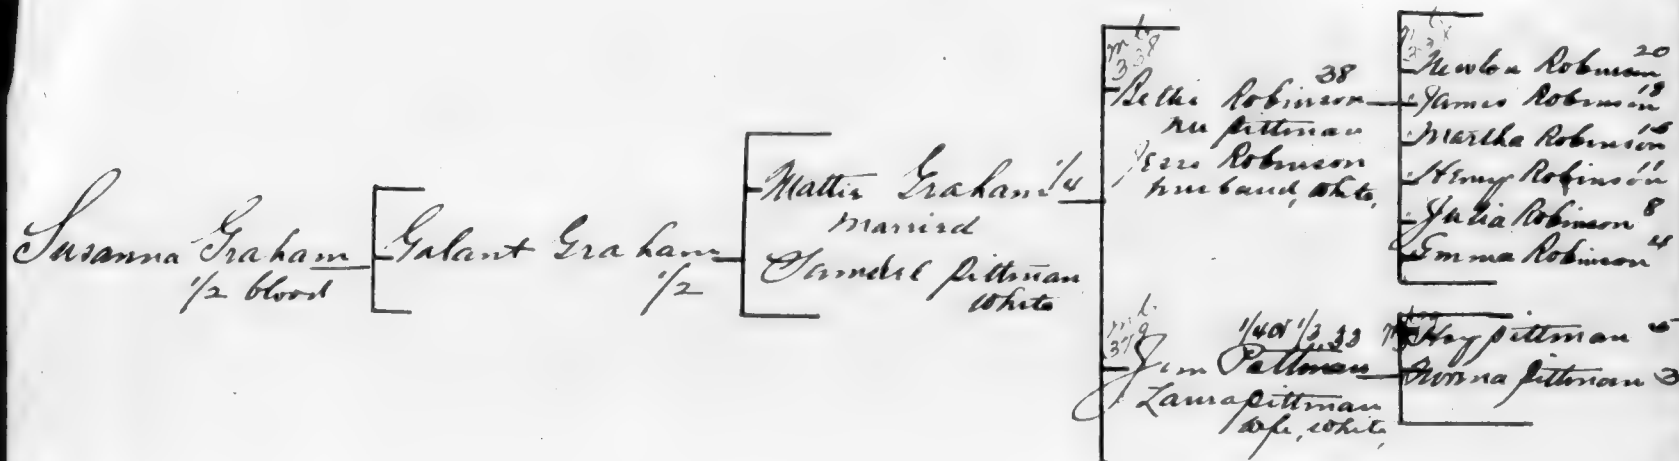 Susanna Graham
1/2 blood
Galant Graham
1/2
Mattie Graham 1/4
Married
Samuel Pittman
White
38
Bettie Robinson
nee Pittman
Jess Robinson
husband, White,
1/4 of 1/2 33
Jim Pittman
Laura Pittman
wife, white,
Newton Robinson 20
James Robinson 18
Martha Robinson
Henry Robinson 11
Julia Robinson 8
Emma Robinson 4
Hoy Pittman 5
Pittman 3